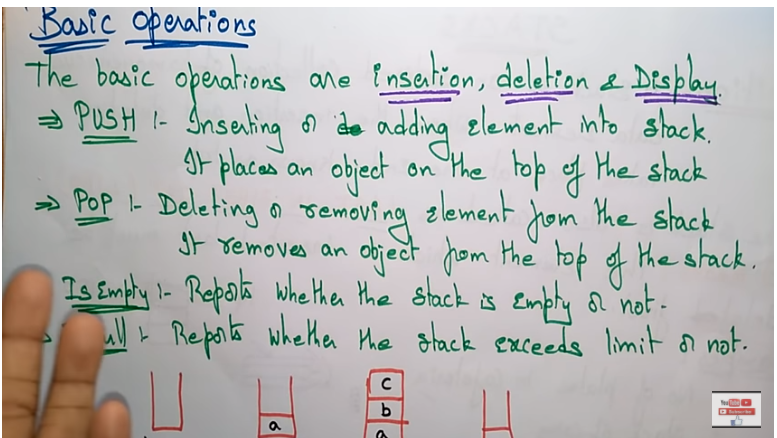 Basic operations
The basic operations are insertion, deletion & Display.
⇒ PUSH :- Inserting or adding element into stack.
It places an object on the top of the stack
⇒ POP :- Deleting or removing element from the stack
It removes an object from the top of the stack.
Is Empty :- Reports whether the stack is empty or not.
Reports whether the stack exceeds limit or not.
c
b
a a
YouTube
Subscribe